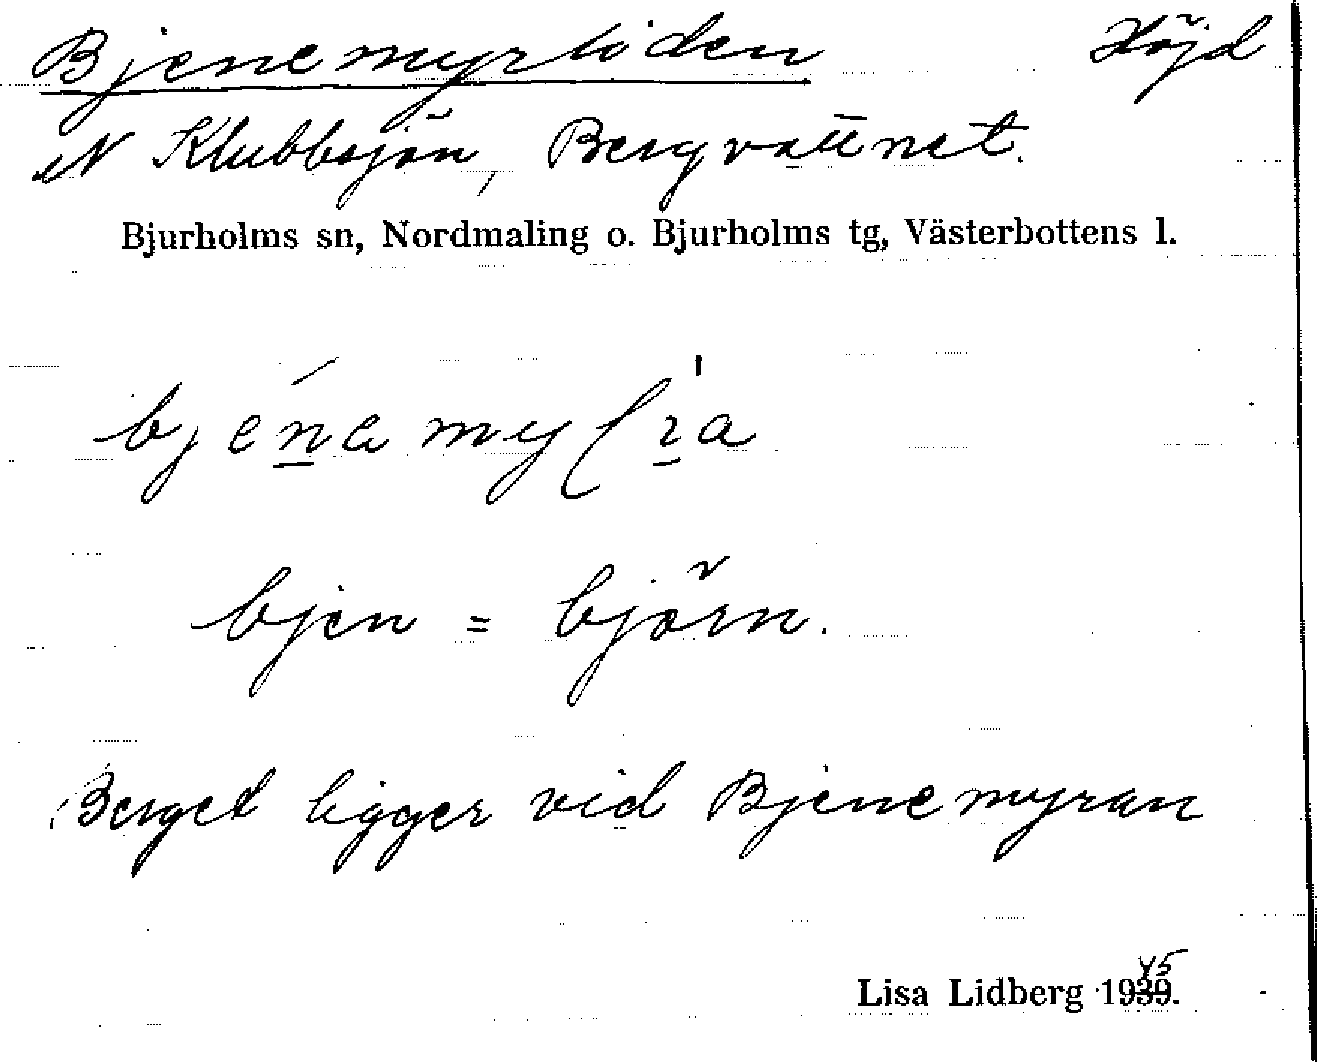 Bjenemyrliden Höjd
N Klubbsjön, Bergvattnet.
Bjurholms sn, Nordmaling o. Bjurholms tg, Västerbottens l.
bjen = björn.
Berget ligger vid Bjenemyran
Lisa Lidberg 1945.